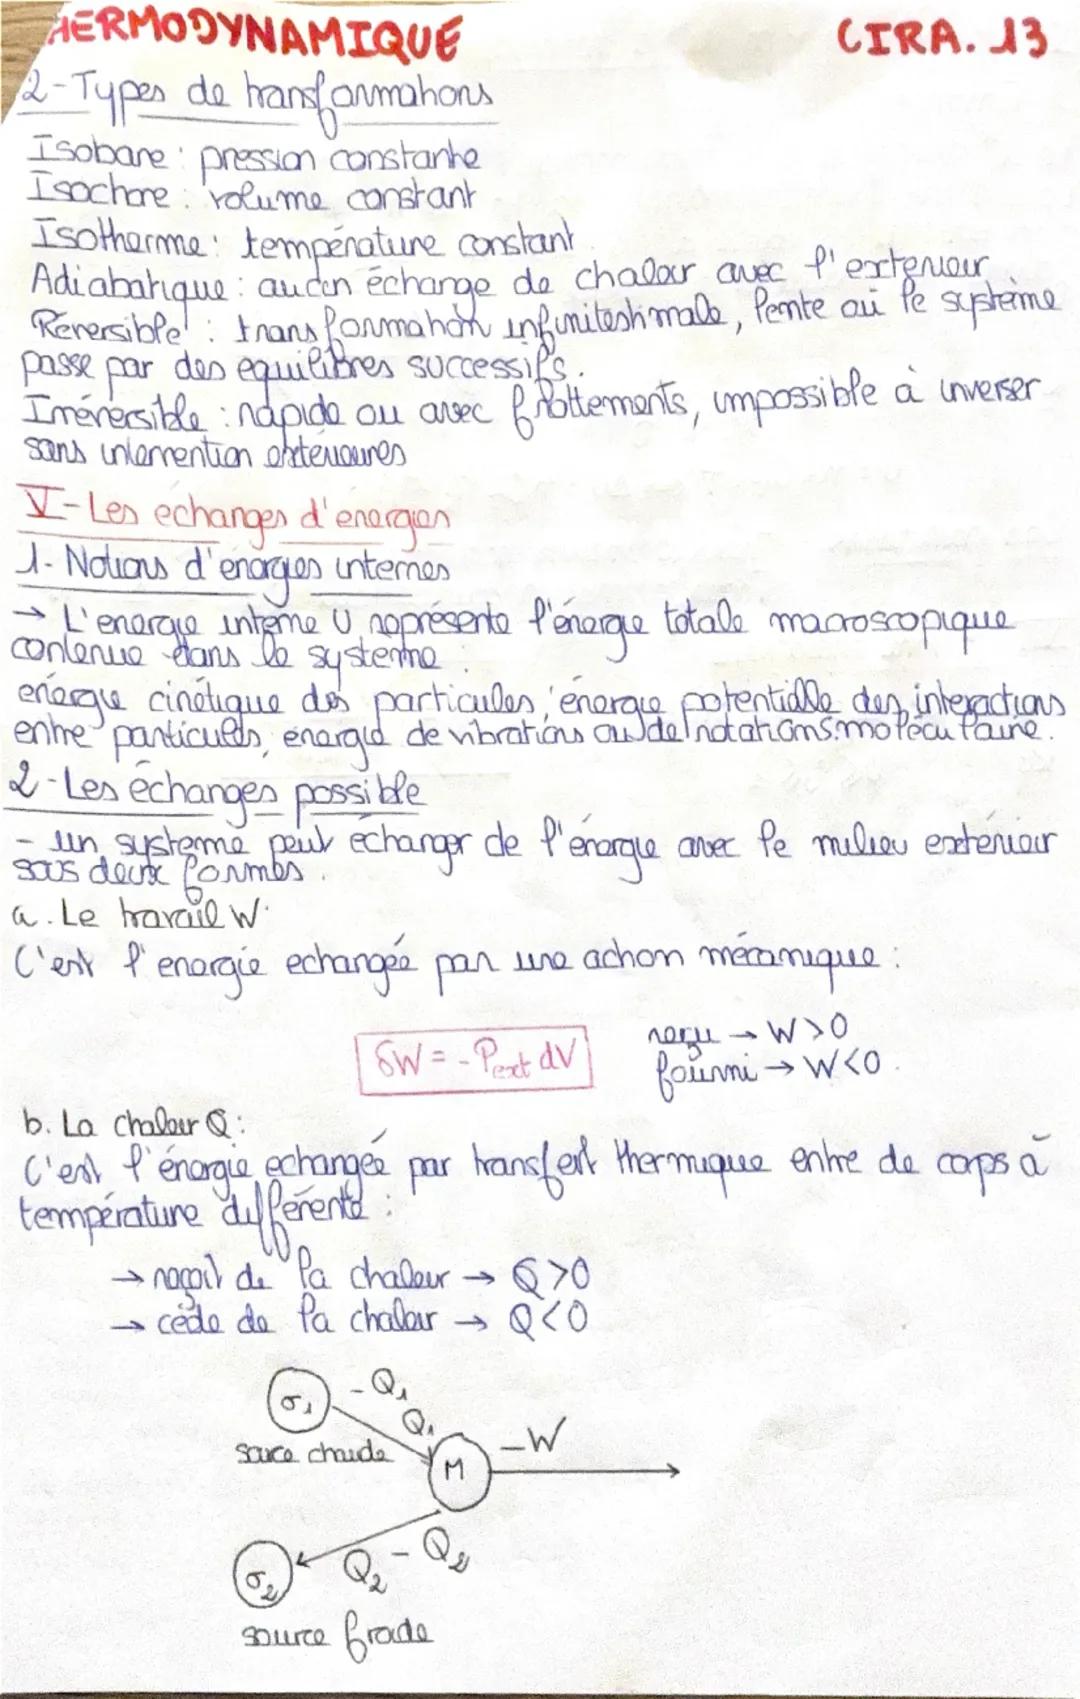 HERMODYNAMIQUE CIRA. 13
2-Types de transformations
Isobare : pression constante
Isochore : volume constant
Isotherme : température constant
Adiabatique : aucun échange de chaleur avec l'exterieur
Réversible : transformation infinitestimale, lente où le système
passe par des equilibres successifs.
Irréversible : rapide ou avec frottements, impossible à inverser
sans intervention exterieures
V-Les echanges d'energies
1- Notions d'énergies internes
→ L'energie interne U représente l'énergie totale macroscopique
contenue dans le systeme :
energie cinétique des particules, énergie potentielle des interactions
entre particules, énergie de vibrations ou de rotations moléculaire.
2-Les échanges possible
- un systeme peut echanger de l'énergie avec le milieu extérieur
sous deux formes.
a. Le travail W:
C'est l'energie echangée par une action mécanique :
δW = - Pext dV
reçu → W>0
fourni → W<0.
b. La chaleur Q:
C'est l'énergie echangée par transfert thermique entre de corps à
température différente :
→ reçoit de la chaleur → Q>0
→ cède de la chaleur → Q<0
σ1 - Q1
Q1
source chaude
M
- W
σ2 Q2 - Q2
source froide